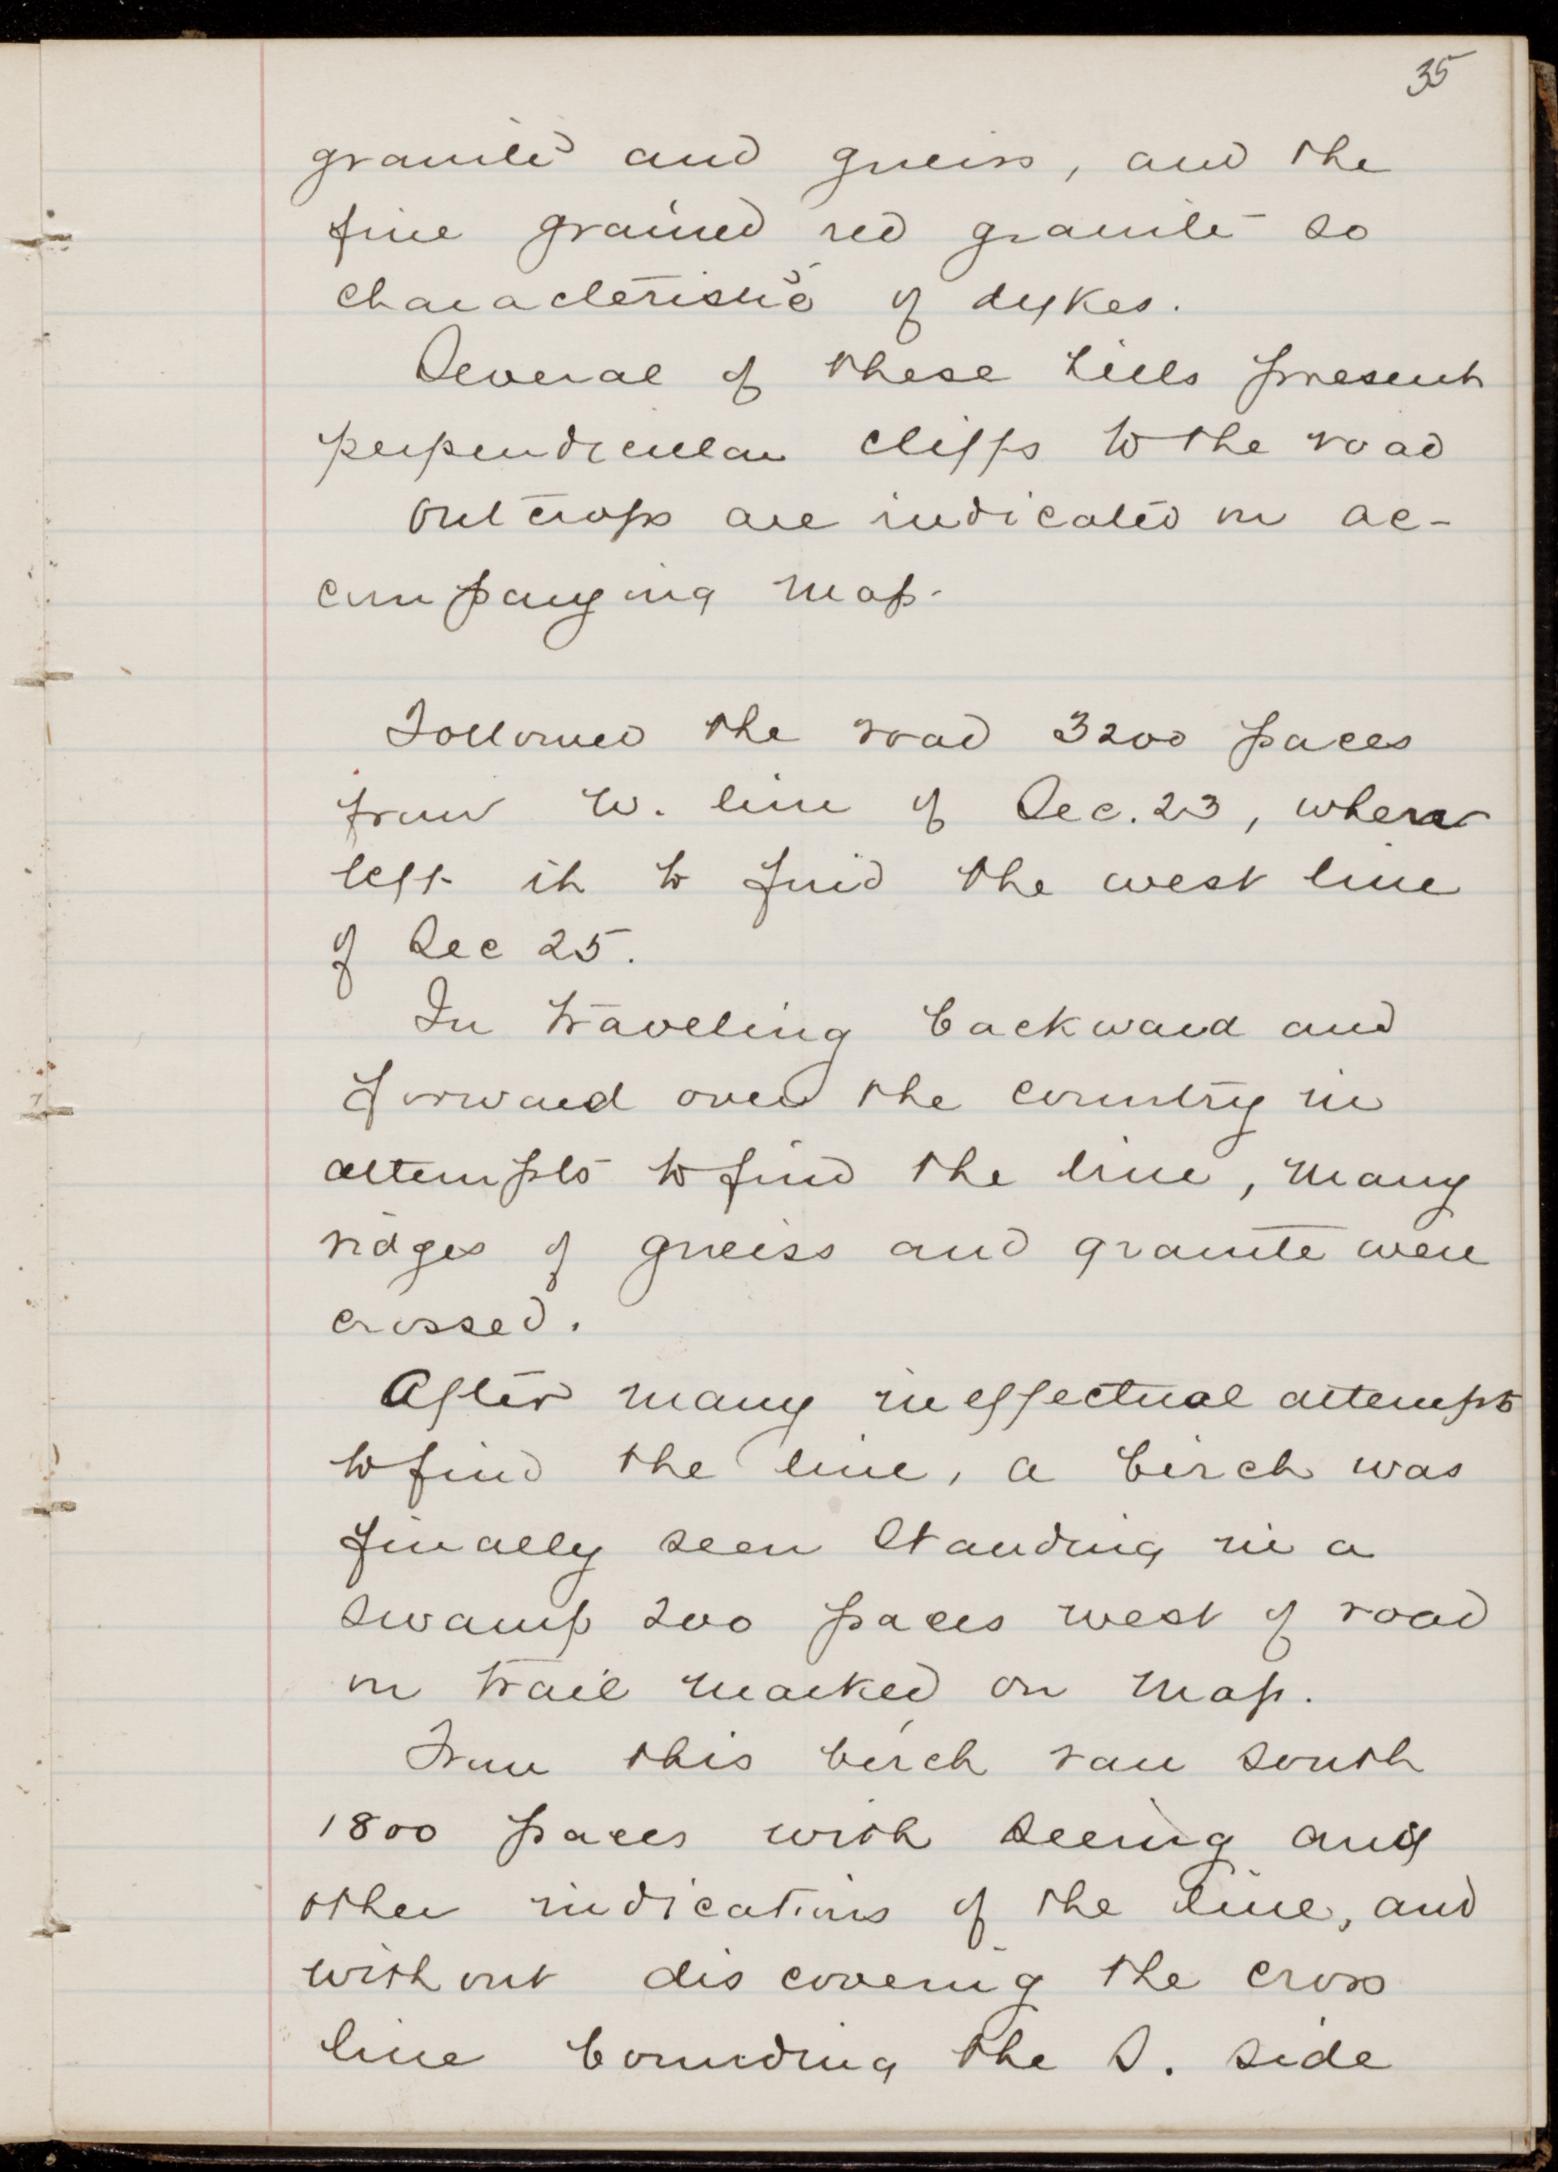 35
granite and gneiss, and the
fine grained red granite so
characteristic of dykes.
Several of these hills present
perpendicular cliffs to the road
outcrops are indicated on ac-
companying map.
Followed the road 3200 paces
from W. line of Sec. 23, where
left it to find the west line
of Sec 25.
In traveling backward and
forward over the country in
attempts to find the line, many
ridges of gneiss and granite were
crossed.
After many ineffectual attempts
to find the line, a birch was
finally seen standing in a
swamp 200 paces west of road
on trail marked on map.
From this birch ran south
1800 paces with seeing any
other indications of the line, and
without discovering the cross
line bounding the S. side